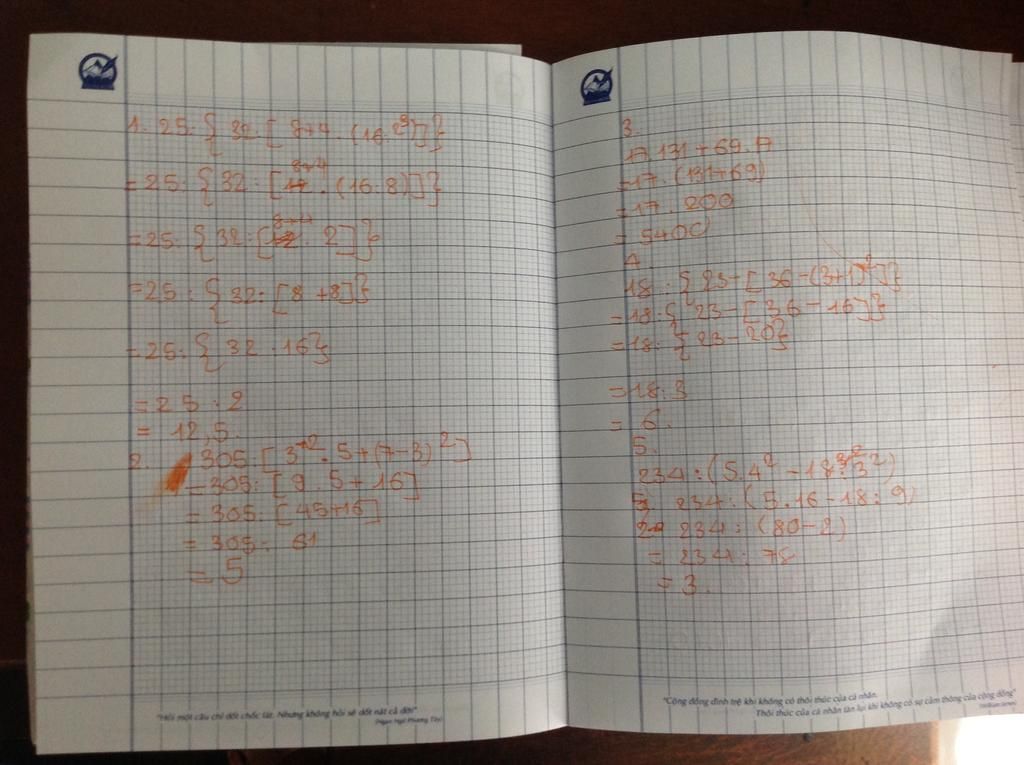 1. 25: { 32: [ 8+4. (16:2³)]}
8+4
= 25: { 32: [ . (16:8)]}
8+4
= 25: { 32: [ . 2]}
= 25: { 32: [8 +8]}
= 25: { 32 :16}
= 25 : 2
= 12,5.
2. 305: [3². 5+(7-3)²]
= 305: [9 . 5+ 16]
= 305: [45+16]
= 305: 61
= 5
"Hỏi một câu chỉ dốt chốc lát. Nhưng không hỏi sẽ dốt nát cả đời"
(Ngạn Ngữ Phương Tây)
3.
17.131+69.17
=17. (131+69)
=17. 200
= 5400
4
18 : { 23-[36-(3+1)²]}
=18:{ 23-[36-16]}
=18: { 23-20}
=18:3
= 6.
5.
234:(5.4²-18:3²)
234:(5.16-18:9)
234: (80-2)
= 234: 78
= 3.
"Cộng đồng đình trệ khi không có thôi thúc của cá nhân.
Thôi thúc của cá nhân tàn lụi khi không có sự cảm thông của cộng đồng"
(William James)